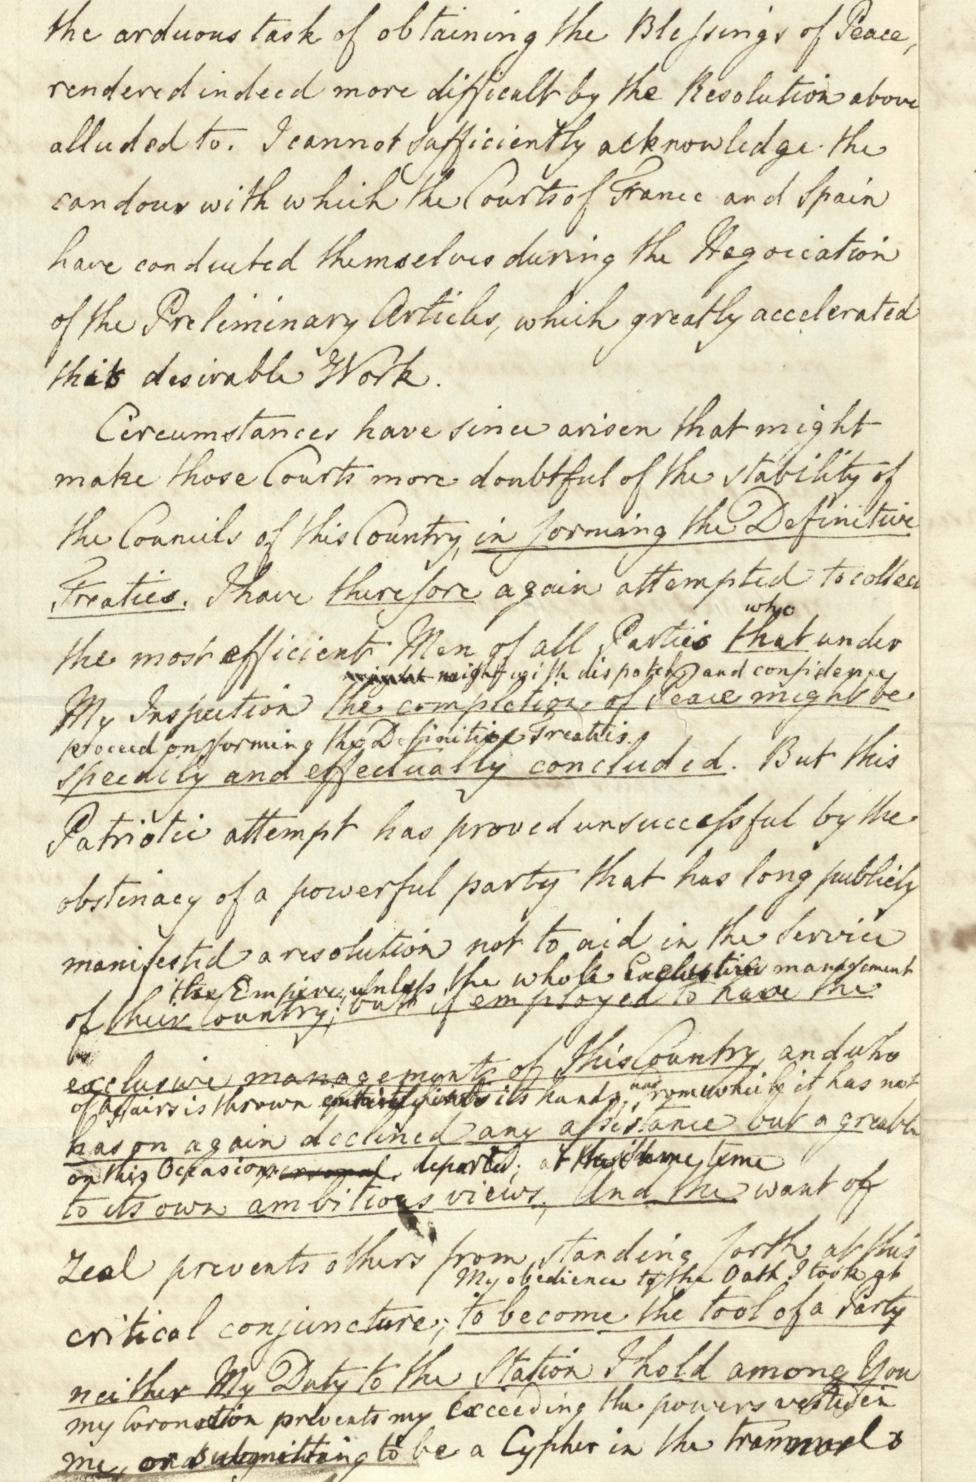 the arduous task of obtaining the Blessings of Peace,
rendered indeed more difficult by the Resolution above
alluded to. I cannot sufficiently acknowledge the
candour with which the Courts of France and Spain
have conducted themselves during the Negociation
of the Preliminary Articles, which greatly accelerated
that desirable Work.
Circumstances have since arisen that might
make those Courts more doubtful of the stability of
the Councils of this Country, in forming the Definitive
Treaties. I have therefore again attempted to collect
who
the most efficient Men of all Parties that under
might with dispatch and confidence
My Inspection the completion of Peace might be
proceed on forming the Definitive Treaties.
speedily and effectually concluded. But this
Patriotic attempt has proved unsuccessful by the
obstinacy of a powerful party that has long publicly
manifested a resolution not to aid in the Service
the Empire, unless the whole Exclusive management
of their Country; but if employed to have the
exclusive managements of this Country, and who
of Affairs is thrown into its hands, from which it has not
has on again declined any assistance but a greater
on this Occasion departed; at the same time
to its own ambitious views, And the want of
Zeal prevents others from standing forth at this
My obedience to the Oath I took at
critical conjuncture; to become the tool of a Party
neither My Duty to the Station I hold among You
my Coronation prevents my Exceeding the powers vested in
me, or submitting to be a Cypher in the trammels